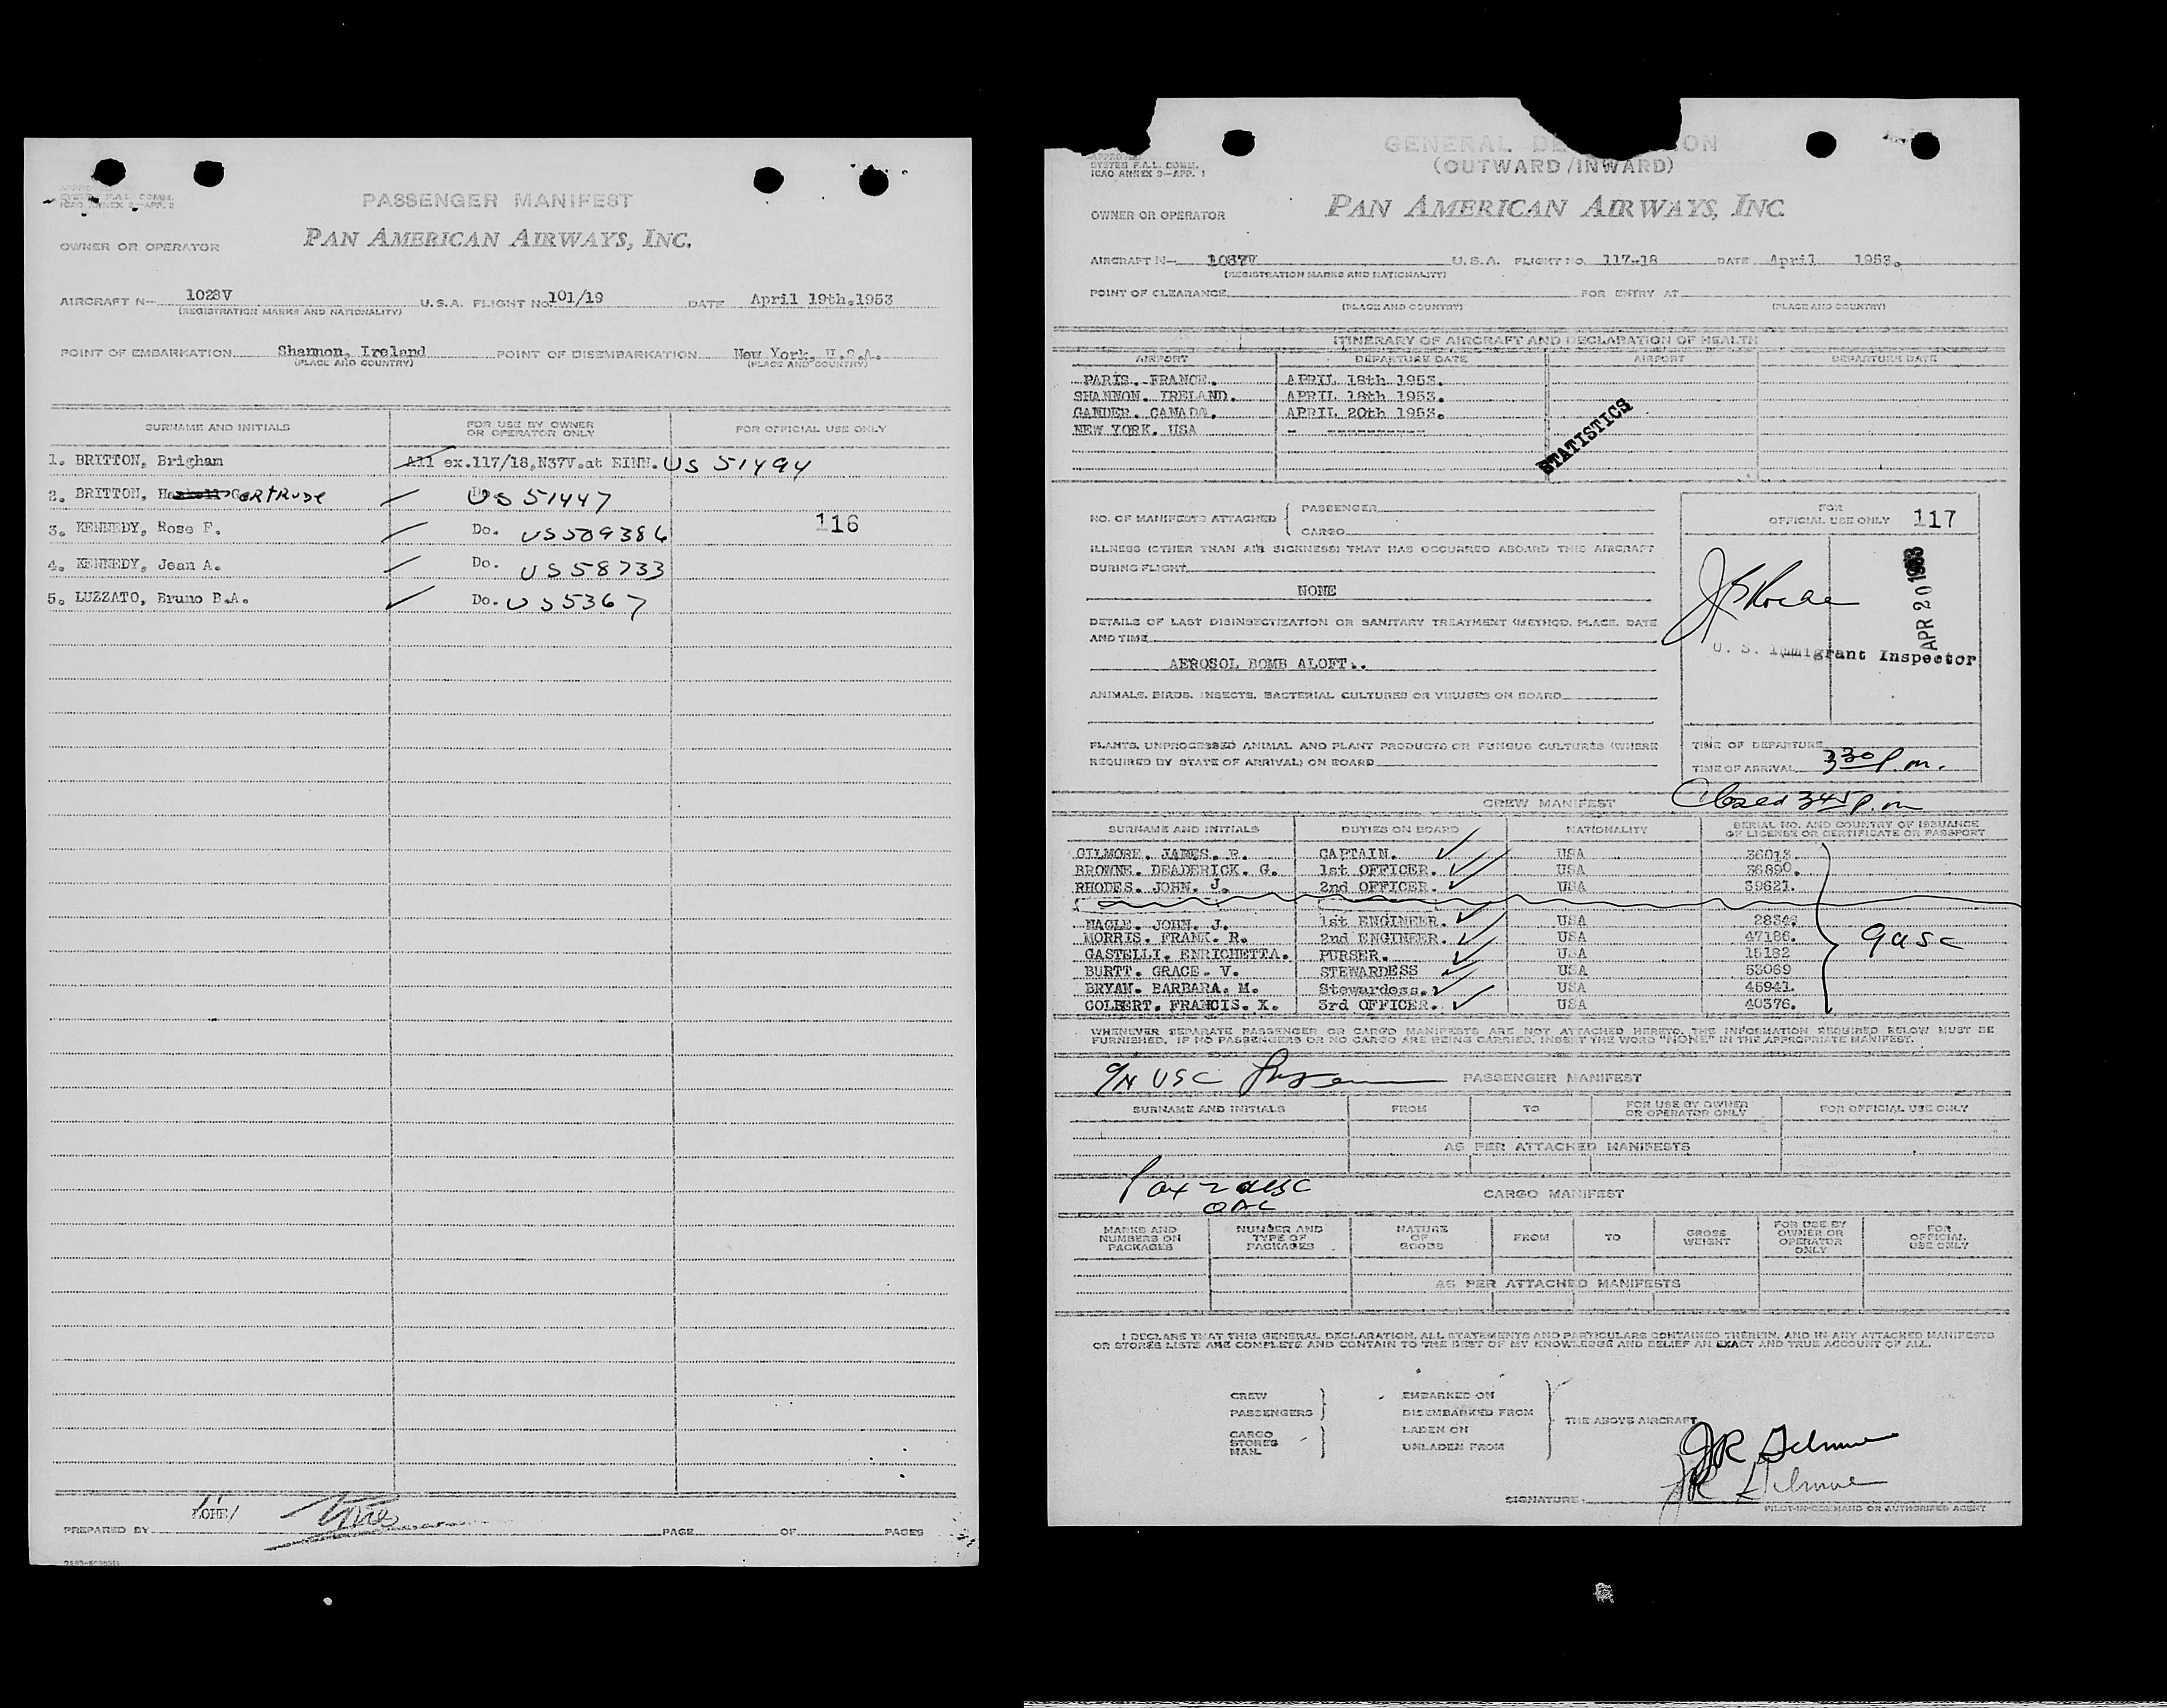 SYSTEM F.A.L. COMM.
ICAO ANNEX 9—APP. 2
PASSENGER MANIFEST
OWNER OR OPERATOR
PAN AMERICAN AIRWAYS, INC.
AIRCRAFT N— 1028V U.S.A. FLIGHT NO. 101/19 DATE April 19th.1953
(REGISTRATION MARKS AND NATIONALITY)
POINT OF EMBARKATION Shannon, Ireland POINT OF DISEMBARKATION New York, U.S.A.
(PLACE AND COUNTRY) (PLACE AND COUNTRY)
SURNAME AND INITIALS FOR USE BY OWNER OR OPERATOR ONLY FOR OFFICIAL USE ONLY
1. BRITTON, Brigham All ex.117/18,N37V.at EINN. US 51494
2. BRITTON, GERTRUDE US 51447
3. KENNEDY, Rose F. Do. US509386 116
4. KENNEDY, Jean A. Do. US58733
5. LUZZATO, Bruno B.A. Do. US5367
PREPARED BY PAGE OF PAGES
APPROVED
SYSTEM F.A.L. COMM.
ICAO ANNEX 9—APP. 1
GENERAL DE ON
(OUTWARD/INWARD)
OWNER OR OPERATOR
PAN AMERICAN AIRWAYS, INC.
AIRCRAFT N— 1037V U.S.A. FLIGHT NO. 117-18 DATE April 1953.
(REGISTRATION MARKS AND NATIONALITY)
POINT OF CLEARANCE FOR ENTRY AT
(PLACE AND COUNTRY) (PLACE AND COUNTRY)
ITINERARY OF AIRCRAFT AND DECLARATION OF HEALTH
AIRPORT DEPARTURE DATE AIRPORT DEPARTURE DATE
PARIS. FRANCE. APRIL 18th 1953.
SHANNON. IRELAND. APRIL 18th 1953.
GANDER. CANADA. APRIL 20th 1953.
NEW YORK. USA - ----------
STATISTICS
NO. OF MANIFESTS ATTACHED { PASSENGER
CARGO
FOR OFFICIAL USE ONLY 117
ILLNESS (OTHER THAN AIR SICKNESS) THAT HAS OCCURRED ABOARD THIS AIRCRAFT
DURING FLIGHT
NONE
DETAILS OF LAST DISINSECTIZATION OR SANITARY TREATMENT (METHOD, PLACE, DATE
AND TIME
AEROSOL BOMB ALOFT..
APR 20 1953
U. S. Immigrant Inspector
ANIMALS, BIRDS, INSECTS, BACTERIAL CULTURES OR VIRUSES ON BOARD
PLANTS, UNPROCESSED ANIMAL AND PLANT PRODUCTS OR FUNGUS CULTURES (WHERE
REQUIRED BY STATE OF ARRIVAL) ON BOARD
TIME OF DEPARTURE
TIME OF ARRIVAL 330 p.m.
Closed 345 p.m
CREW MANIFEST
SURNAME AND INITIALS DUTIES ON BOARD NATIONALITY SERIAL NO. AND COUNTRY OF ISSUANCE OF LICENSE OR CERTIFICATE OR PASSPORT
GILMORE. JAMES. R. CAPTAIN. USA 36013.
BROWNE. DEADERICK. G. 1st OFFICER. USA 36890.
RHODES. JOHN. J. 2nd OFFICER. USA 39821.
NAGLE. JOHN. J. 1st ENGINEER. USA 28346
MORRIS. FRANK. R. 2nd ENGINEER. USA 47186.
GASTELLI. ENRICHETTA. PURSER. USA 15182
BURTT. GRACE. V. STEWARDESS USA 53069
BRYAN. BARBARA. M. Stewardess. USA 45941.
COLBERT. FRANCIS. X. 3rd OFFICER. USA 40376.
9 USC
WHENEVER SEPARATE PASSENGER OR CARGO MANIFESTS ARE NOT ATTACHED HERETO, THE INFORMATION REQUIRED BELOW MUST BE
FURNISHED. IF NO PASSENGERS OR NO CARGO ARE BEING CARRIED, INSERT THE WORD "NONE" IN THE APPROPRIATE MANIFEST.
USC PASSENGER MANIFEST
SURNAME AND INITIALS FROM TO FOR USE BY OWNER OR OPERATOR ONLY FOR OFFICIAL USE ONLY
AS PER ATTACHED MANIFESTS
CARGO MANIFEST
MARKS AND NUMBERS ON PACKAGES NUMBER AND TYPE OF PACKAGES NATURE OF GOODS FROM TO GROSS WEIGHT FOR USE BY OWNER OR OPERATOR ONLY FOR OFFICIAL USE ONLY
AS PER ATTACHED MANIFESTS
I DECLARE THAT THIS GENERAL DECLARATION, ALL STATEMENTS AND PARTICULARS CONTAINED THEREIN, AND IN ANY ATTACHED MANIFESTS
OR STORES LISTS ARE COMPLETE AND CONTAIN TO THE BEST OF MY KNOWLEDGE AND BELIEF AN EXACT AND TRUE ACCOUNT OF ALL.
CREW EMBARKED ON
PASSENGERS DISEMBARKED FROM
THE ABOVE AIRCRAFT
CARGO LADEN ON
STORES
MAIL UNLADEN FROM
JR Gilmore
JR Gilmore
SIGNATURE:
PILOT-IN-COMMAND OR AUTHORIZED AGENT